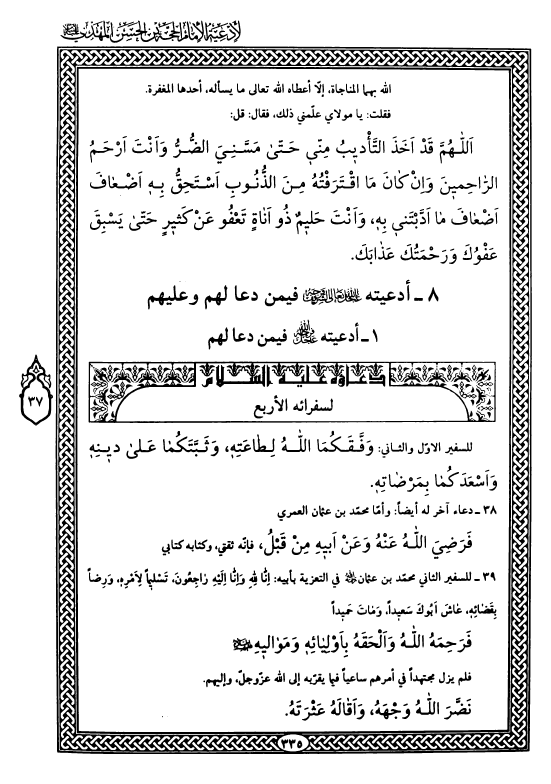 لأدعية الإمام الحجة بن الحسن المهدي
الله بهما المناجاة، إلّا أعطاه الله تعالى ما يسأله، أحدها المغفرة.
فقلت: يا مولاي علّمني ذلك، فقال: قل:
اَللّٰهُمَّ قَدْ اَخَذَ التَّأْديبُ مِنّي حَتّىٰ مَسَّنِيَ الضُّرُّ وَاَنْتَ اَرْحَمُ
الرّاحِمينَ وَاِنْ كانَ مَا اقْتَرَفْتُهُ مِنَ الذُّنُوبِ اَسْتَحِقُّ بِهِ اَضْعافَ
اَضْعافَ مٰا اَدَّبْتَني بِهِ، وَاَنْتَ حَليمٌ ذُو اَناةٍ تَعْفُو عَنْ كَثيرٍ حَتّىٰ يَسْبِقَ
عَفْوُكَ وَرَحْمَتُكَ عَذابَكَ.
٨ ـ أدعيته فيمن دعا لهم وعليهم
١ ـ أدعيته فيمن دعا لهم
دعاؤه عليه السلام
لسفرائه الأربع
٣٧
للسفير الاوّل والثاني: وَفَّقَكُمَا اللّٰهُ لِطاعَتِهِ، وَثَبَّتَكُمٰا عَلىٰ دينِهِ
وَاَسْعَدَكُمٰا بِمَرْضاتِهِ.
٣٨ ـ دعاء آخر له أيضاً: وأمّا محمّد بن عثمان العمري
فَرَضِيَ اللّٰهُ عَنْهُ وَعَنْ اَبيهِ مِنْ قَبْلُ، فإنّه ثقتي، وكتابه كتابي
٣٩ ـ للسفير الثاني محمّد بن عثمان في التعزية بأبيه: اِنّٰا لِلّٰهِ وَاِنّٰا اِلَيْهِ رٰاجِعُونَ، تَسْليماً لِاَمْرِهِ، وَرِضاً
بِقَضائِهِ، عٰاشَ اَبُوكَ سَعيداً، وَمٰاتَ حَميداً
فَرَحِمَهُ اللّٰهُ وَاَلْحَقَهُ بِاَوْلِيٰائِهِ وَمَوٰاليهِ
فلم يزل مجتهداً في أمرهم ساعياً فيما يقرّبه إلى الله عزّوجلّ، وإليهم.
نَضَّرَ اللّٰهُ وَجْهَهُ، وَاَقالَهُ عَثْرَتَهُ.
٣٣٥